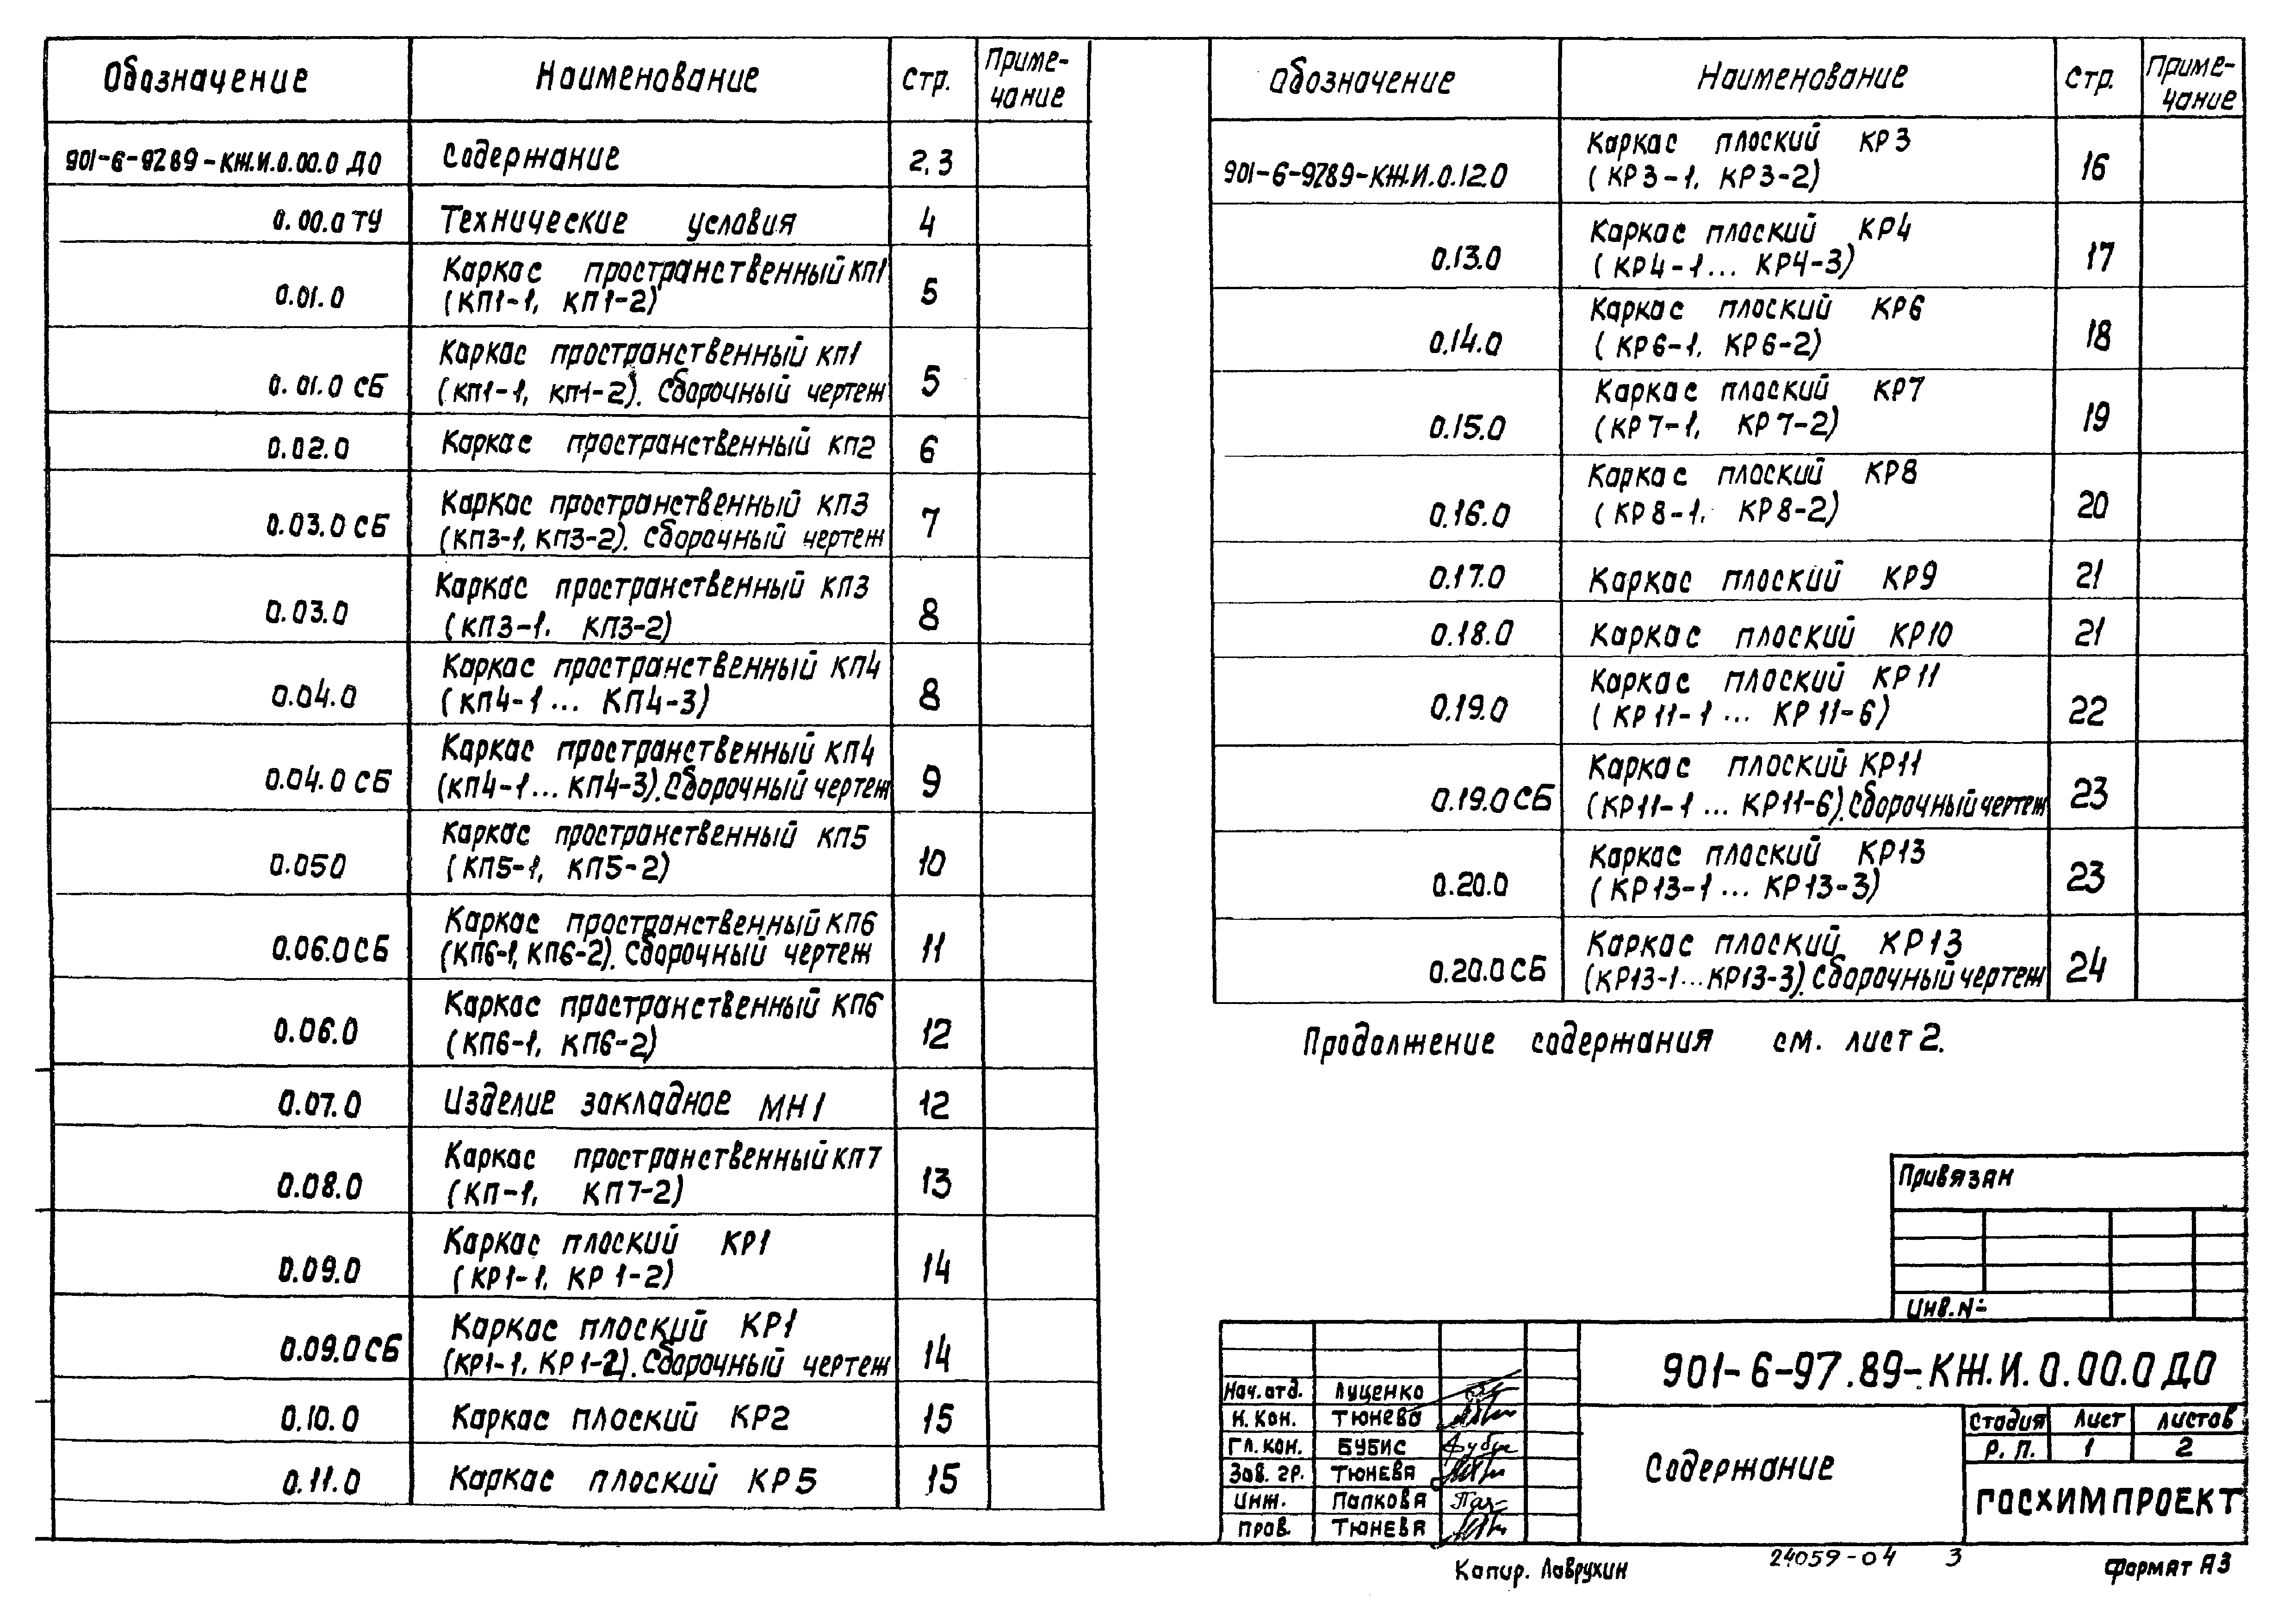 Обозначение Наименование Стр. Приме-
чание
901-6-9789-КЖ.И.0.00.0 ДО Содержание 2,3
0.00.0 ТУ Технические условия 4
0.01.0 Каркас пространственный КП1
(КП1-1, КП1-2) 5
0.01.0 СБ Каркас пространственный КП1
(КП1-1, КП1-2). Сборочный чертеж 5
0.02.0 Каркас пространственный КП2 6
0.03.0 СБ Каркас пространственный КП3
(КП3-1, КП3-2). Сборочный чертеж 7
0.03.0 Каркас пространственный КП3
(КП3-1, КП3-2) 8
0.04.0 Каркас пространственный КП4
(КП4-1... КП4-3) 8
0.04.0 СБ Каркас пространственный КП4
(КП4-1... КП4-3). Сборочный чертеж 9
0.050 Каркас пространственный КП5
(КП5-1, КП5-2) 10
0.06.0 СБ Каркас пространственный КП6
(КП6-1, КП6-2). Сборочный чертеж 11
0.06.0 Каркас пространственный КП6
(КП6-1, КП6-2) 12
0.07.0 Изделие закладное МН1 12
0.08.0 Каркас пространственный КП7
(КП-1, КП7-2) 13
0.09.0 Каркас плоский КР1
(КР1-1, КР1-2) 14
0.09.0 СБ Каркас плоский КР1
(КР1-1, КР1-2). Сборочный чертеж 14
0.10.0 Каркас плоский КР2 15
0.11.0 Каркас плоский КР5 15
Обозначение Наименование Стр. Приме-
чание
901-6-9789-КЖ.И.0.12.0 Каркас плоский КР3
(КР3-1, КР3-2) 16
0.13.0 Каркас плоский КР4
(КР4-1... КР4-3) 17
0.14.0 Каркас плоский КР6
(КР6-1, КР6-2) 18
0.15.0 Каркас плоский КР7
(КР7-1, КР7-2) 19
0.16.0 Каркас плоский КР8
(КР8-1, КР8-2) 20
0.17.0 Каркас плоский КР9 21
0.18.0 Каркас плоский КР10 21
0.19.0 Каркас плоский КР11
(КР11-1... КР11-6) 22
0.19.0 СБ Каркас плоский КР11
(КР11-1... КР11-6). Сборочный чертеж 23
0.20.0 Каркас плоский КР13
(КР13-1... КР13-3) 23
0.20.0 СБ Каркас плоский КР13
(КР13-1...КР13-3). Сборочный чертеж 24
Продолжение содержания см. лист 2.
Привязан
Инв.№
901-6-97.89-КЖ.И.0.00.0 ДО
Нач.отд. Луценко
Н. кон. Тюнева
Гл. кон. Бубис
Зав. гр. Тюнева
Инж. Папкова
Пров. Тюнева
Содержание
Стадия Лист Листов
Р. П. 1 2
ГОСХИМПРОЕКТ
Копир. Лаврухин 24059-04 3 Формат А3